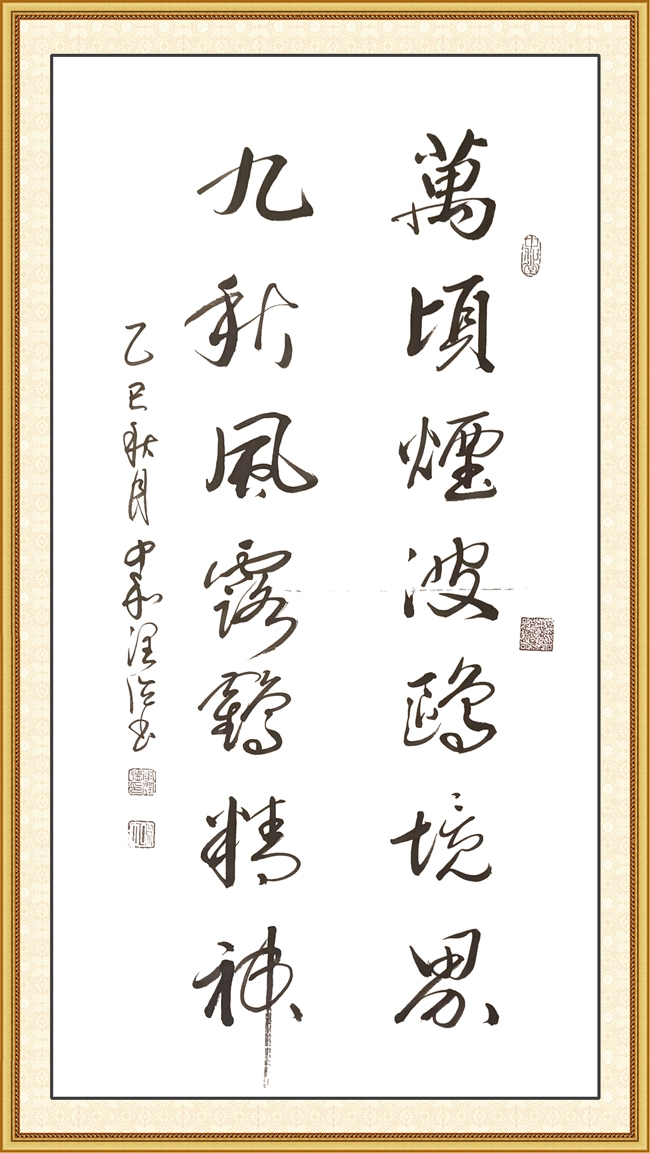 萬頃煙波鷗境界
九秋風露鶴精神
乙巳秋月中和